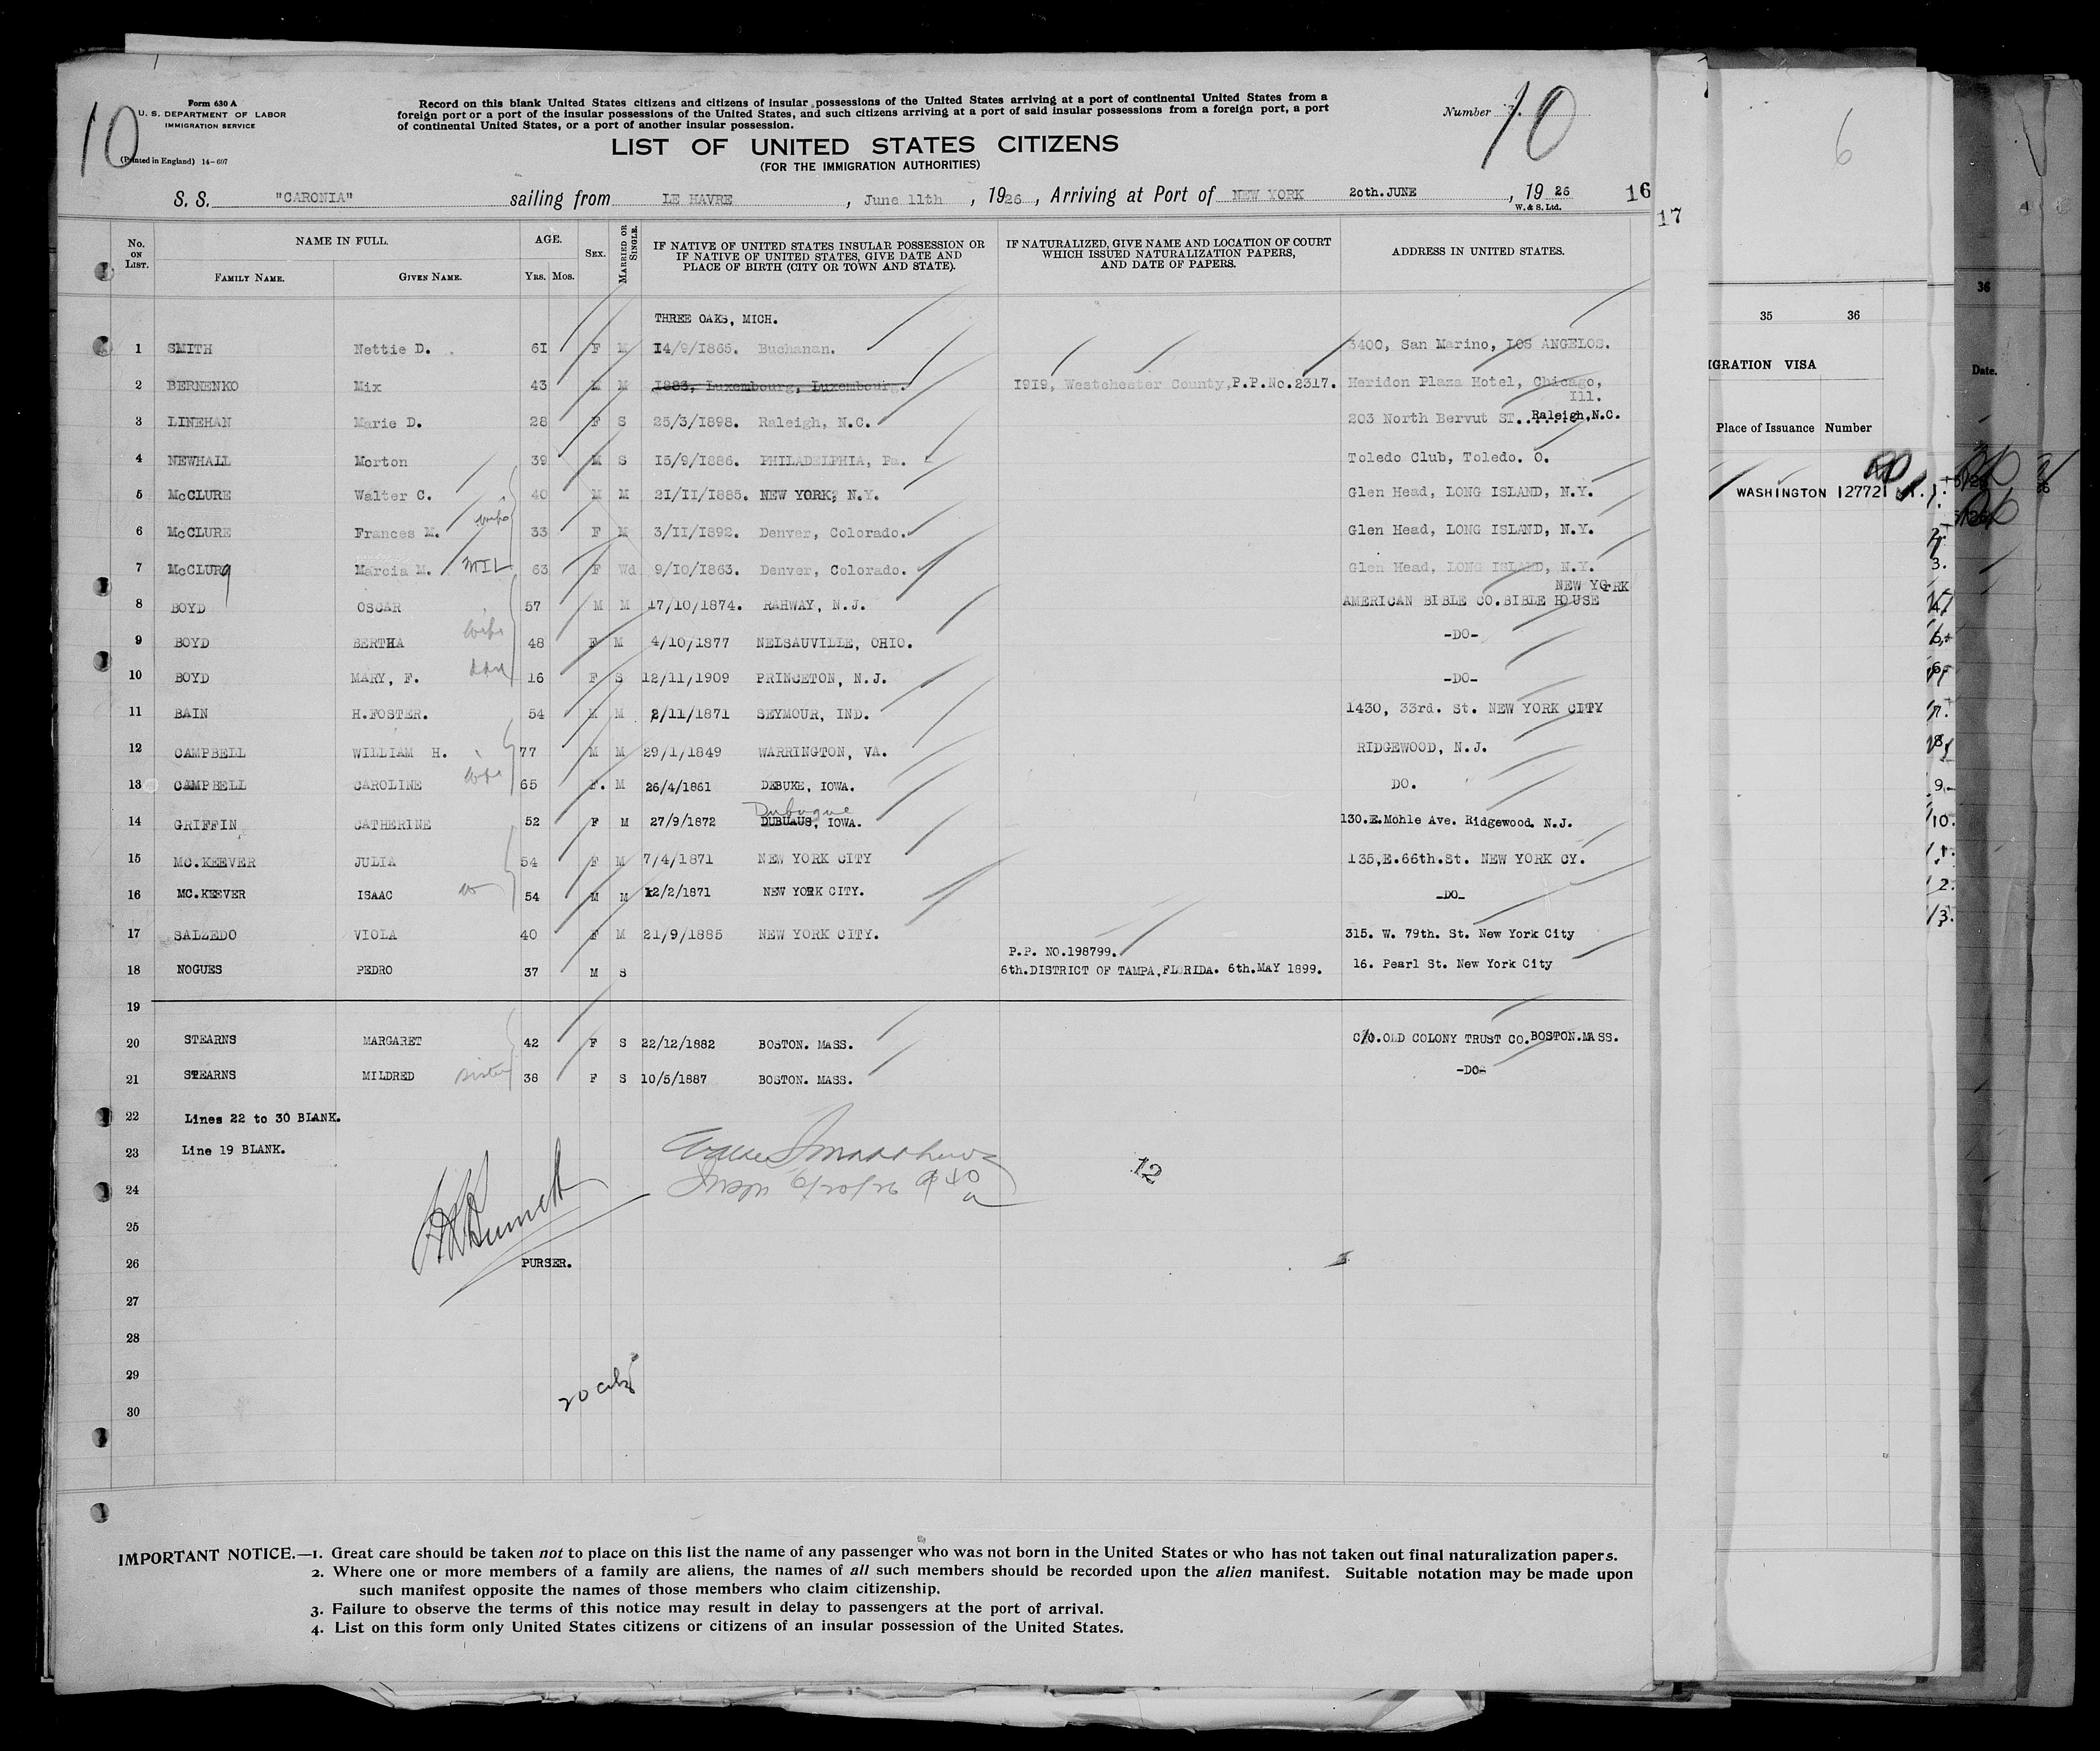 10
Form 630 A
U. S. DEPARTMENT OF LABOR
IMMIGRATION SERVICE
(Printed in England) 14-607
Record on this blank United States citizens and citizens of insular possessions of the United States arriving at a port of continental United States from a
foreign port or a port of the insular possessions of the United States, and such citizens arriving at a port of said insular possessions from a foreign port, a port
of continental United States, or a port of another insular possession.
Number 10
LIST OF UNITED STATES CITIZENS
(FOR THE IMMIGRATION AUTHORITIES)
S. S. "CARONIA" sailing from LE HAVRE, June 11th, 1926, Arriving at Port of NEW YORK 20th. JUNE, 1926 16
W. & S. Ltd.
No. ON LIST. NAME IN FULL. FAMILY NAME. GIVEN NAME. AGE. Yrs. Mos. SEX. MARRIED OR SINGLE. IF NATIVE OF UNITED STATES INSULAR POSSESSION OR IF NATIVE OF UNITED STATES, GIVE DATE AND PLACE OF BIRTH (CITY OR TOWN AND STATE). IF NATURALIZED, GIVE NAME AND LOCATION OF COURT WHICH ISSUED NATURALIZATION PAPERS, AND DATE OF PAPERS. ADDRESS IN UNITED STATES.
THREE OAKS, MICH.
1 SMITH Nettie D. 61 F M 14/9/1865. Buchanan. 3400, San Marino, LOS ANGELOS.
2 BERNENKO Mix 43 M M 1883, Luxembourg, Luxembourg. 1919, Westchester County, P.P.No.2317. Heridon Plaza Hotel, Chicago,
Ill.
3 LINEHAN Marie D. 28 F S 25/3/1898. Raleigh, N.C. 203 North Bervut ST...Raleigh,N.C.
4 NEWHALL Morton 39 M S 15/9/1886. PHILADELPHIA, Pa. Toledo Club, Toledo. O.
5 McCLURE Walter C. 40 M M 21/11/1885. NEW YORK, N.Y. Glen Head, LONG ISLAND, N.Y.
6 McCLURE Frances M. wife 33 F M 3/11/1892. Denver, Colorado. Glen Head, LONG ISLAND, N.Y.
7 McCLURg Marcia M. MIL 63 F Wd 9/10/1863. Denver, Colorado. Glen Head, LONG ISLAND, N.Y.
NEW YORK
8 BOYD OSCAR 57 M M 17/10/1874. RAHWAY, N.J. AMERICAN BIBLE CO.BIBLE HOUSE
9 BOYD BERTHA wife 48 F M 4/10/1877 NELSAUVILLE, OHIO. -DO-
10 BOYD MARY, F. 16 F S 12/11/1909 PRINCETON, N.J. -DO-
11 BAIN H.FOSTER. 54 M M 2/11/1871 SEYMOUR, IND. 1430, 33rd. St. NEW YORK CITY
12 CAMPBELL WILLIAM H. 77 M M 29/1/1849 WARRINGTON, VA. RIDGEWOOD, N.J.
13 CAMPBELL CAROLINE wife 65 F. M 26/4/1861 DEBUKE, IOWA. DO.
Dubuque
14 GRIFFIN CATHERINE 52 F M 27/9/1872 DUBUAUS, IOWA. 130.E.Mohle Ave. Ridgewood. N.J.
15 MC.KEEVER JULIA 54 F M 7/4/1871 NEW YORK CITY 135,E.66th.St. NEW YORK CY.
16 MC.KEEVER ISAAC 54 M M 12/2/1871 NEW YORK CITY. -DO-
17 SALZEDO VIOLA 40 F M 21/9/1885 NEW YORK CITY. 315. W. 79th. St. New York City
P.P. NO.198799.
18 NOGUES PEDRO 37 M S 6th.DISTRICT OF TAMPA,FLORIDA. 6th.MAY 1899. 16. Pearl St. New York City
19
20 STEARNS MARGARET 42 F S 22/12/1882 BOSTON. MASS. C/O.OLD COLONY TRUST CO.BOSTON.MASS.
21 STEARNS MILDRED sister 38 F S 10/5/1887 BOSTON. MASS. -DO-
22 Lines 22 to 30 BLANK.
23 Line 19 BLANK.
12
24
25
26 PURSER.
27
28
29
20 citz
30
IMPORTANT NOTICE.—1. Great care should be taken not to place on this list the name of any passenger who was not born in the United States or who has not taken out final naturalization papers.
2. Where one or more members of a family are aliens, the names of all such members should be recorded upon the alien manifest. Suitable notation may be made upon
such manifest opposite the names of those members who claim citizenship.
3. Failure to observe the terms of this notice may result in delay to passengers at the port of arrival.
4. List on this form only United States citizens or citizens of an insular possession of the United States.
17
6
35 36
IGRATION VISA
Place of Issuance Number
WASHINGTON 127721
36
Date.